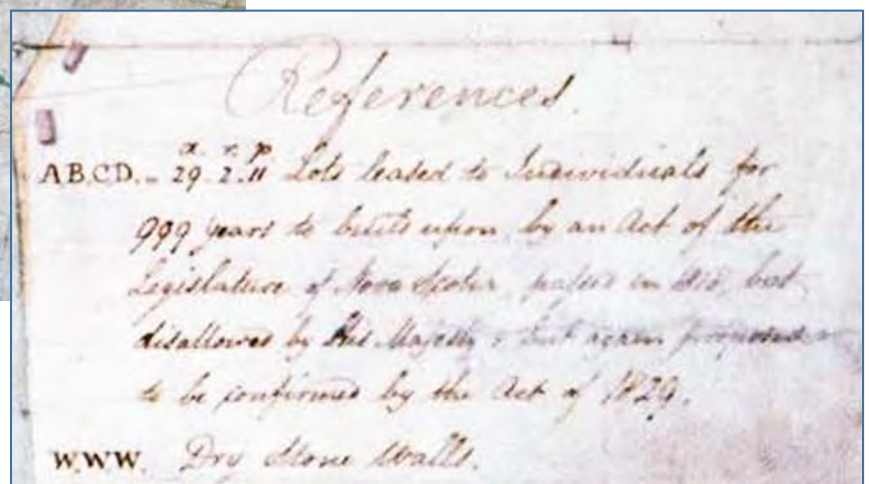 References.
a. r. p
A.B.C.D. - 29. 2. 11 Lots leased to Individuals for
999 years to built upon, by an Act of the
Legislature of Nova Scotia, passed in but
disallowed by His Majesty & but again proposed
to be confirmed by the Act of 1829.
W.W.W. Dry Stone Walls.